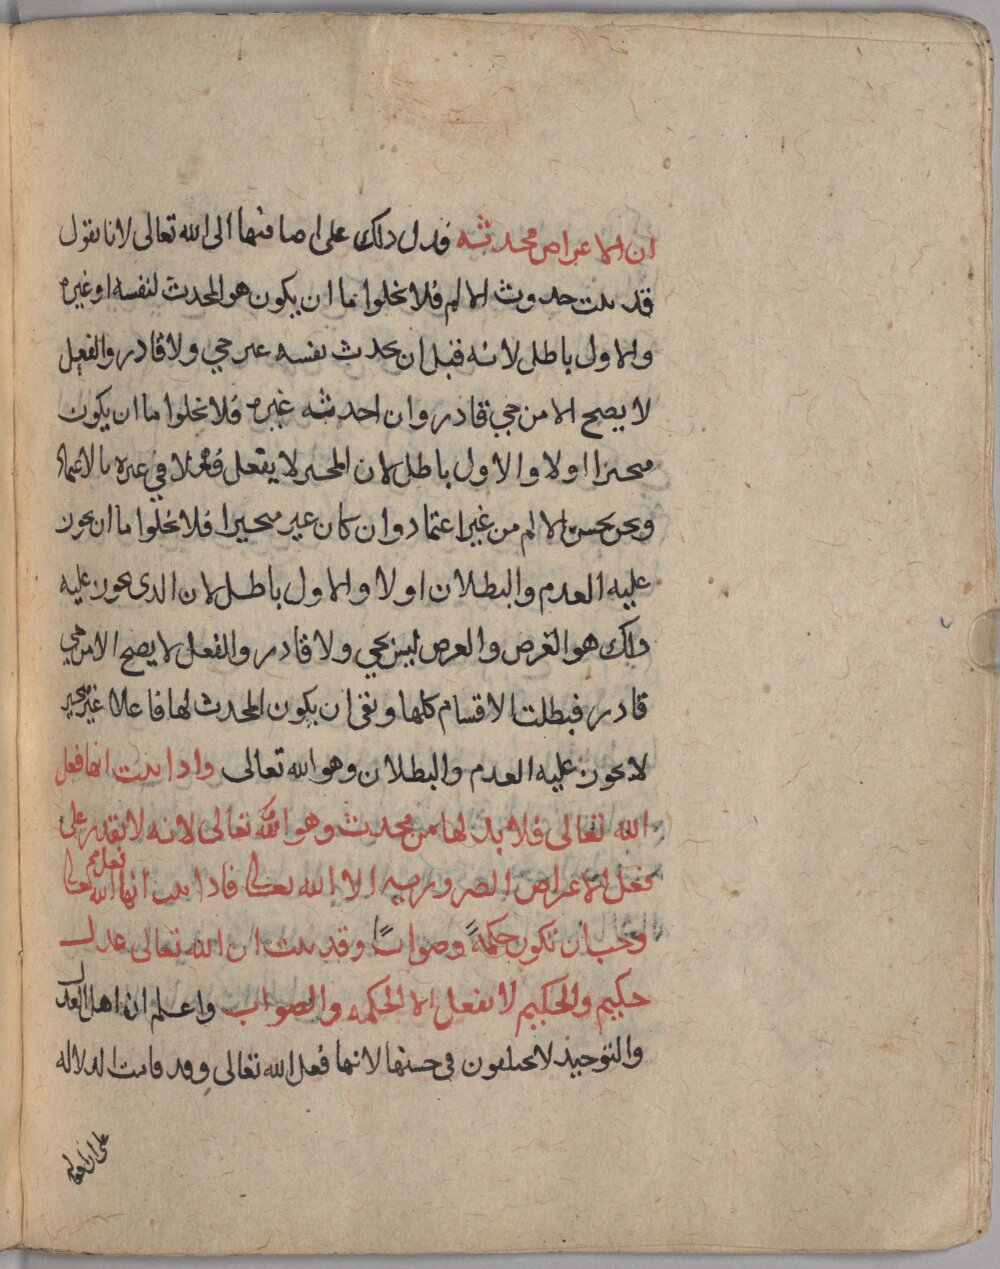 ان الاعراض محدثه فدل ذلك على اضافتها الى الله تعالى لانا نقول
قد ثبت حدوث الالم فلا يخلوا ما ان يكون هو المحدث لنفسه او غيره
والاول باطل لانه قبل ان يحدث نفسه غير حي ولا قادر والفعل
لا يصح الا من حي قادر وان احدثه غيره فلا يخلوا ما ان يكون
متحيزا اولا والاول باطل لان المتحيز لا يفعل فعلا في غيره الا بالاعتماد
ونحن نحس الالم من غير اعتماد وان كان غير متحيزا فلا يخلوا ما ان يجوز
عليه العدم والبطلان اولا والاول باطل لان الذي يجوز عليه
ذلك هو العرض والعرض ليس بحي ولا قادر والفعل لا يصح الا من حي
قادر فبطلت الاقسام كلها وبقي ان يكون المحدث لها فاعلا غير متحيز
لا يجوز عليه العدم والبطلان وهو الله تعالى واذا ثبت انها فعل
الله تعالى فلا بد لها من محدث وهو الله تعالى لانه لا يقدر على
فعل الاعراض الضروريه الا الله تعالى فاذا ثبت انها فعل الله تعالى
وجب ان تكون حكمةً وصواباً وقد ثبت ان الله تعالى عدل
حكيم والحكيم لا يفعل الا الحكمه والصواب واعلم ان اهل العدل
والتوحيد لا يختلفون في حسنها لانها فعل الله تعالى وقد قامت الدلاله
على ان افعاله